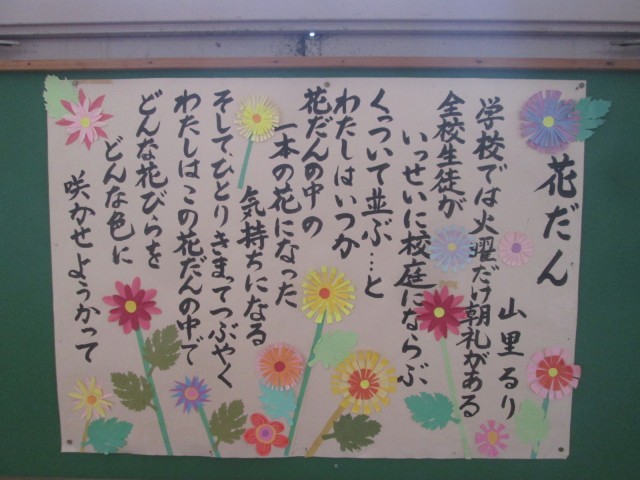 花だん
山里るり
学校では火曜だけ朝礼がある
全校生徒が
いっせいに校庭にならぶ
くっついて並ぶ…と
わたしはいつか
花だんの中の
一本の花になった
気持ちになる
そして、ひとりきまってつぶやく
わたしはこの花だんの中で
どんな花びらを
どんな色に
咲かせようかって